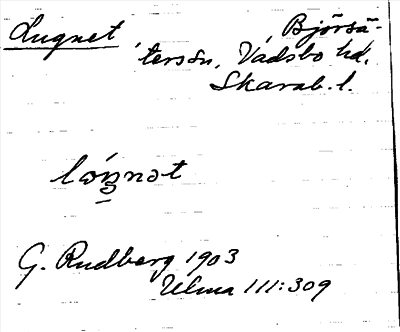 Lugnet Björsä-
terssn, Vadsbo hd,
Skarab. l.
G. Rudberg 1903
Ulma 111:309